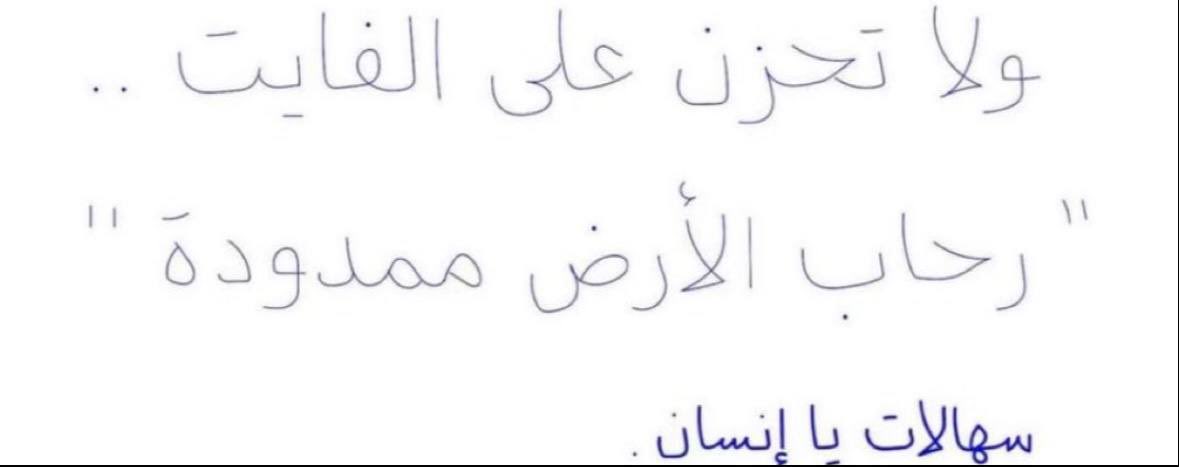 ولا تحزن على الفايت ..
" رحاب الأرض ممدودة "
سهالات يا إنسان .